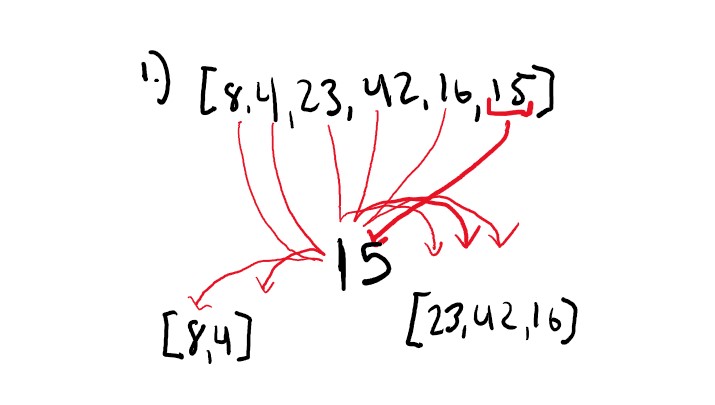 1.) [8,4,23,42,16,15]
15
[8,4]
[23,42,16]